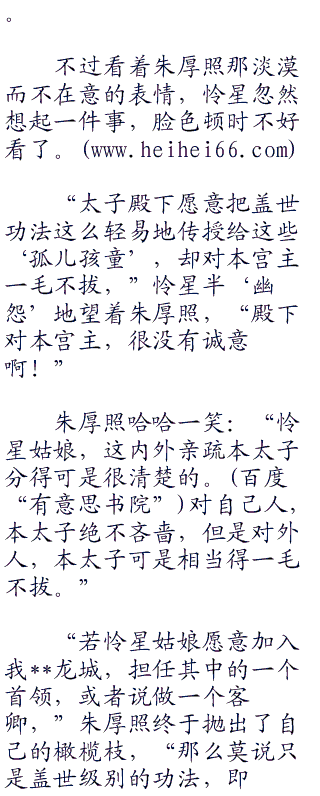 。
不过看着朱厚照那淡漠
而不在意的表情，怜星忽然
想起一件事，脸色顿时不好
看了。(www.heihei66.com)
“太子殿下愿意把盖世
功法这么轻易地传授给这些
‘孤儿孩童’，却对本宫主
一毛不拔，”怜星半‘幽
怨’地望着朱厚照，“殿下
对本宫主，很没有诚意
啊！”
朱厚照哈哈一笑：“怜
星姑娘，这内外亲疏本太子
分得可是很清楚的。(百度
“有意思书院”)对自己人，
本太子绝不吝啬，但是对外
人，本太子可是相当得一毛
不拔。”
“若怜星姑娘愿意加入
我**龙城，担任其中的一个
首领，或者说做一个客
卿，”朱厚照终于抛出了自
己的橄榄枝，“那么莫说只
是盖世级别的功法，即